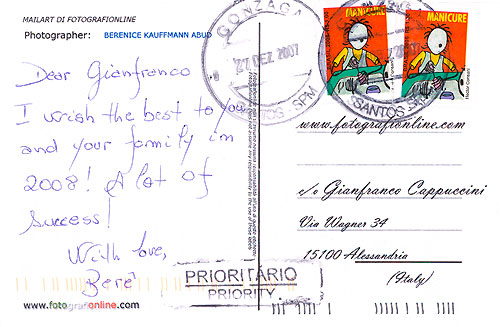 MAILART DI FOTOGRAFIONLINE
Photographer: BERENICE KAUFFMANN ABUD
Dear Gianfranco
I wish the best to you
and your family in
2008! A lot of
success!
With love,
Berê
www.fotografionline.com
GONZAGA
27 DEZ 2007
SANTOS-SPM
MANICURE
MANICURE
SANTOS
www.fotografionline.com
c/o Gianfranco Cappuccini
Via Wagner 34
15100 Alessandria
(Italy)
PRIORITÁRIO
PRIORITY